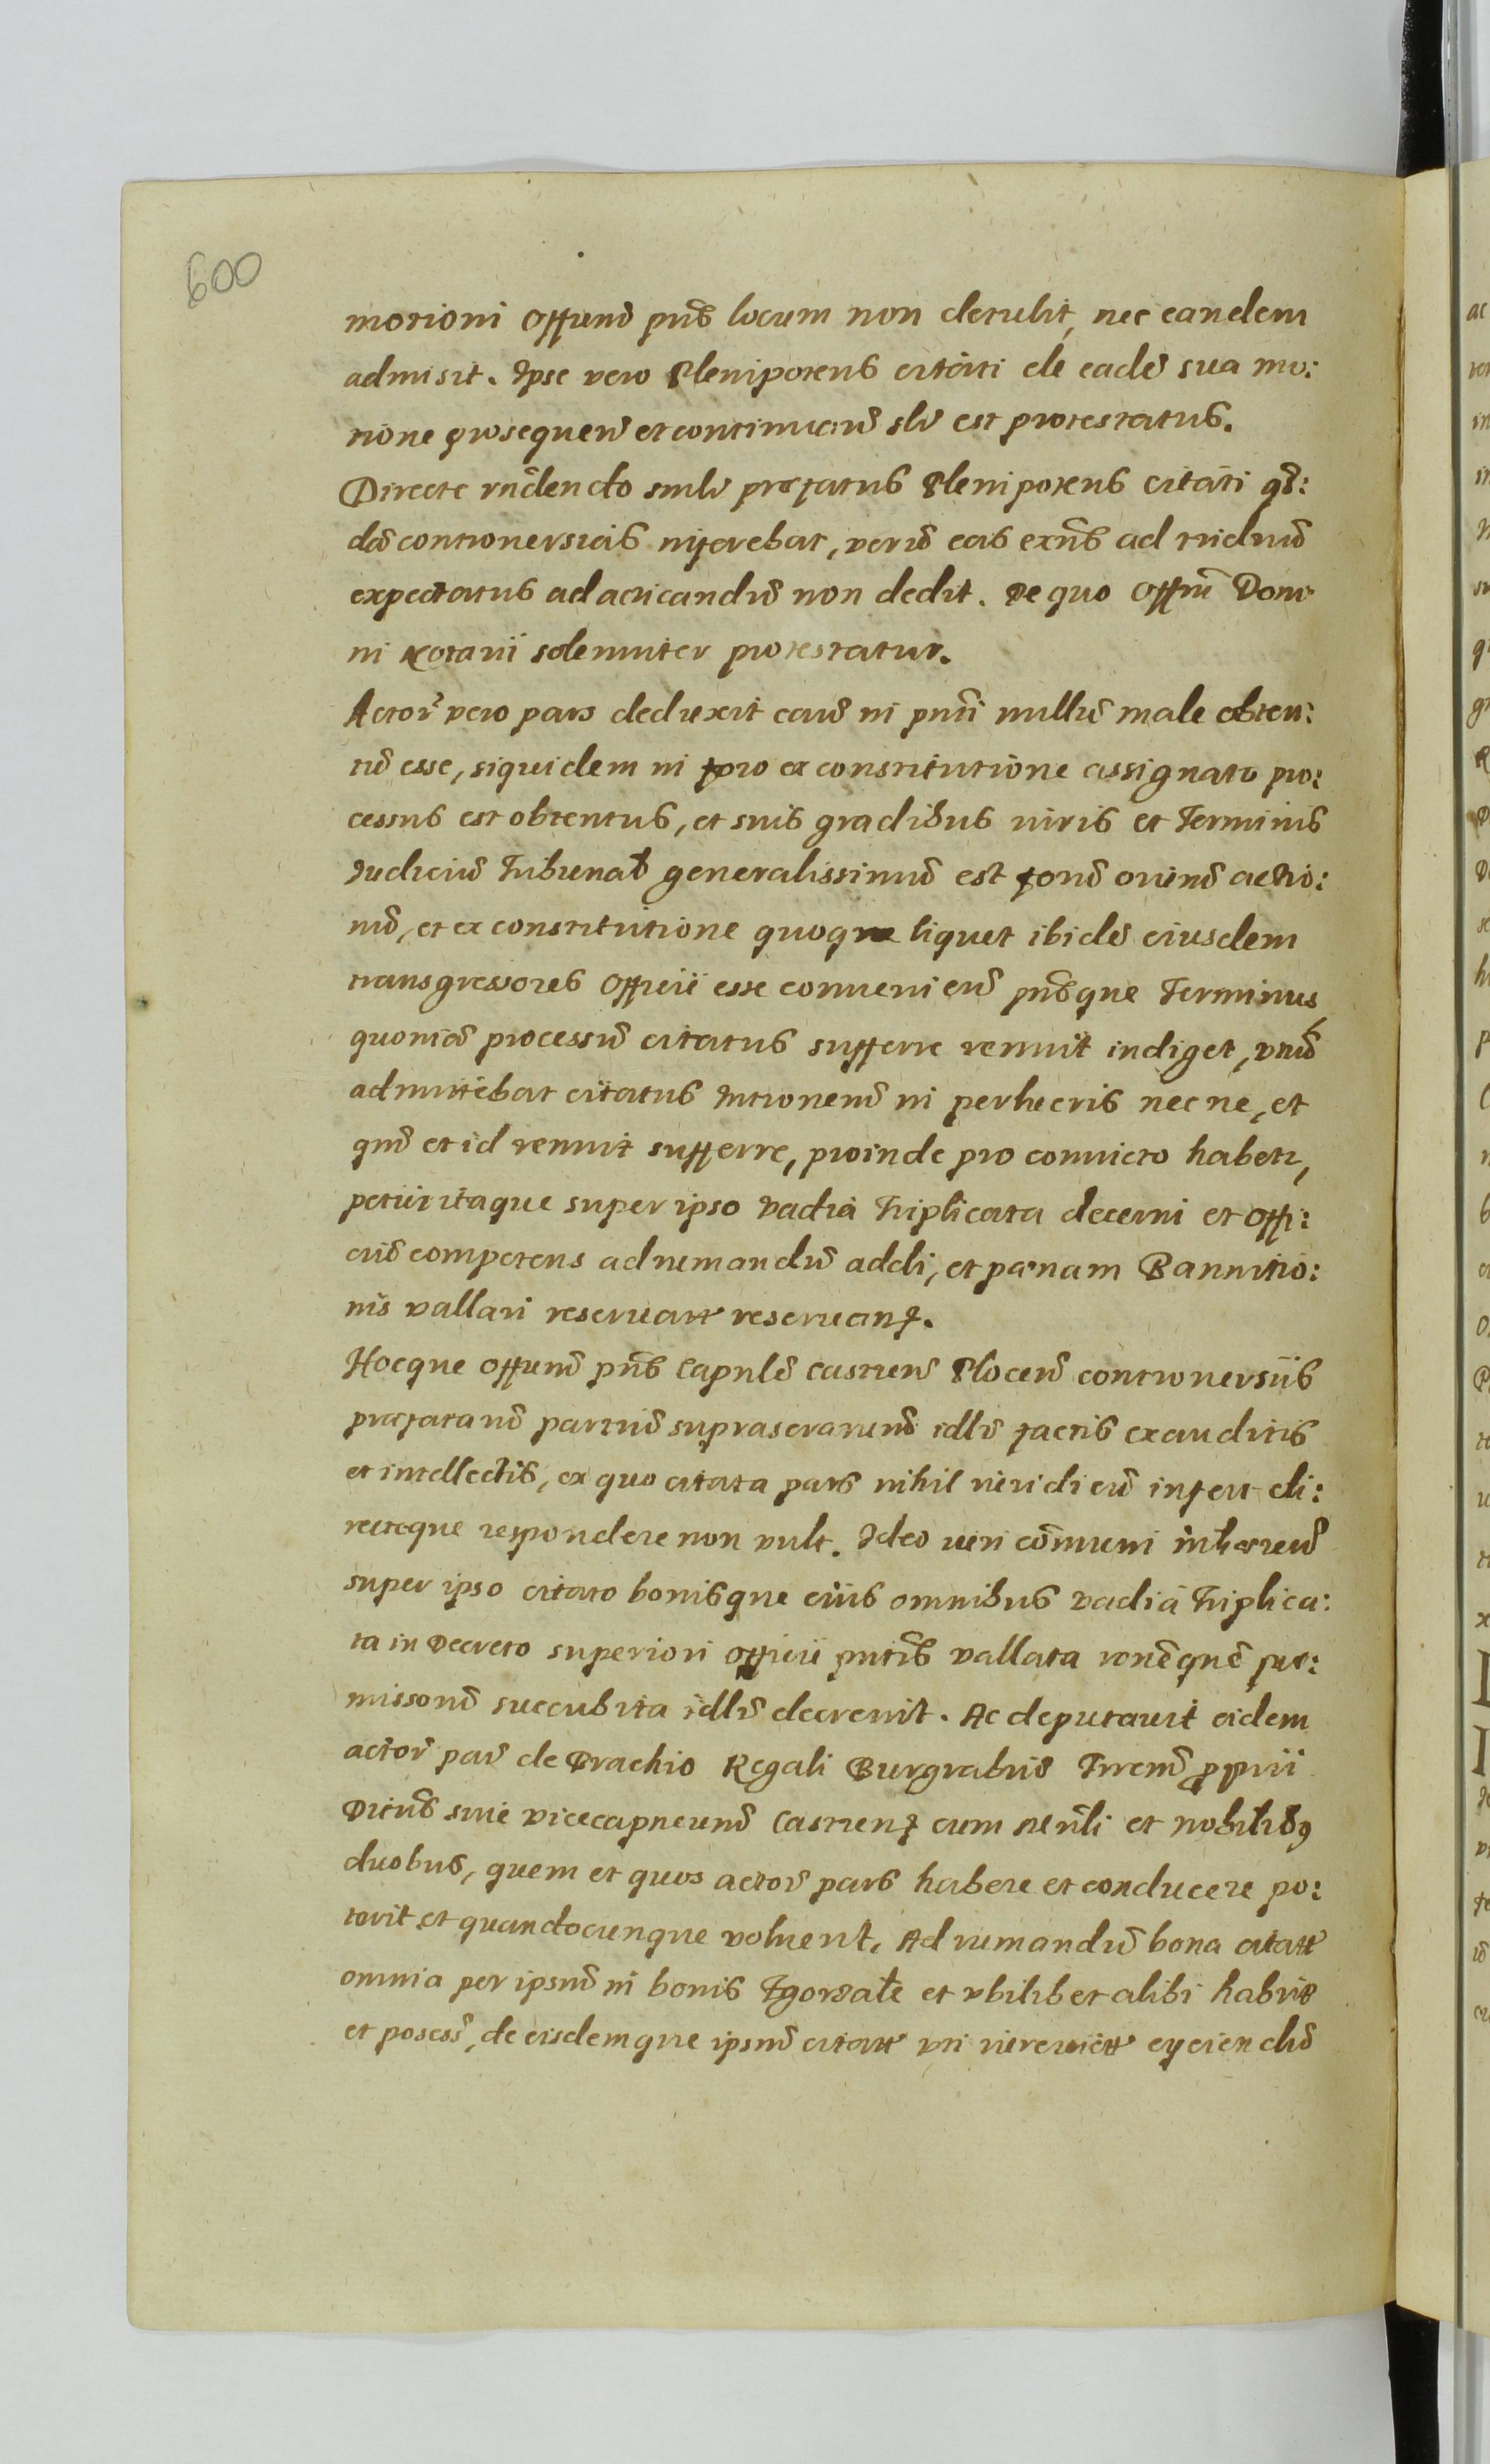 600
motioni Offium pñs locum non detulit, nec eandem
admisit. Ipse vero Plenipotens citati de eadē sua mo:
tione prosequeñ et continuañ slr est protestatus.
Directe rñdendo smlr præfatus Plenipotens citati qs:
dā controuersias inferebat, verū eas exñs ad triduū
expectatus ad acticandū non dedit. De quo Offm̄ Domi
ni Notarii solenniter protestatur.
Actor̄ vero pars deduxit eaū in pnti nullū male obten:
tū esse, siquidem in foro ex constitutione assignato pro:
cessus est obtentus, et suis gradibus iuris et Terminis
Iudiciū Tribunal generalissimū est forū oniūm actio:
nū, et ex constitutione quoque liquet ibidē eiusdem
transgressores Officii esse conueniend pñsque Terminus
quoniā processū citatus sufferre renuit indiget, vnū
admittebat citatus Intromem in perlucris nec ne, et
qm̄ et id renuit sufferre, proinde pro conuicto habetr,
petiit itaque super ipso vadia Triplicata decerni et Offi:
ciū competens ad rumandū addi, et pœnam Bannitio:
nis vallari reseruatt reseruanđ.
Hocque Offium pñs Capnle Castreñ Ploceñ controuersiis
præfatarū partiū suprascrarum idlr factis exauditis
et intellectis, ex quo citata pars nihil iuridicū infert di:
recteque respondere non vult. Ideo iuri cōmuni inhæreñ
super ipso citato bonisque eius omnibus vadia Triplica:
ta in Decreto superiori Officii pntis vallata rōneque præ:
missorū succubita idlr decreuit. Ac deputauit eidem
actor̄ par̄ de Brachio Regali Burgrabiū Turrem ppriī
Dictus siue Vicecapneum Castrenđ cum Mrli et nobilibg
duobus, quem et quos actor̄ pars habere et conducere po:
terit et quandocunque voluerit, Ad rumandū bona citatt
omnia per ipsum in bonis Zgorzałe et vbilibet alibi habit
et posess, de eisdemque ipsum citatt vti iureuictt eyciendū